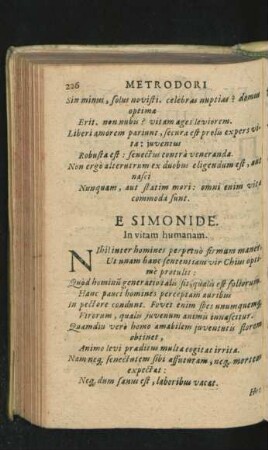 226 METRODORI
Sin minus, solus novisti. celebras nuptias? domus
optima
Erit. non nubis? vitam ages leviorem.
Liberi amorem pariunt, secura est prolis expers vi-
ta: juventus
Robusta est: senectus contrà veneranda.
Non ergò alterutrum ex duobus eligendum est, aut
nasci
Nunquam, aut statim mori: omni enim vita
commoda sunt.
E SIMONIDE.
In vitam humanam.
Nihil inter homines perpetuò firmum manet:
Ut unam hanc sententiam vir Chius opti-
mè protulit:
Quòd hominũ generatio talis sit, qualis est foliorum.
Hanc pauci homines perceptam auribus
in pectore condunt. Fovet enim spes unumquemq;
Virorum, qualis juvenum animis innascitur.
Quamdiu verò homo amabilem juventutis florem
obtinet,
Animo levi præditus multa cogitat irrita.
Nam neq; senectutem sibi affuturam, neq; mortem
expectat:
Neq; dum sanus est, laboribus vacat.